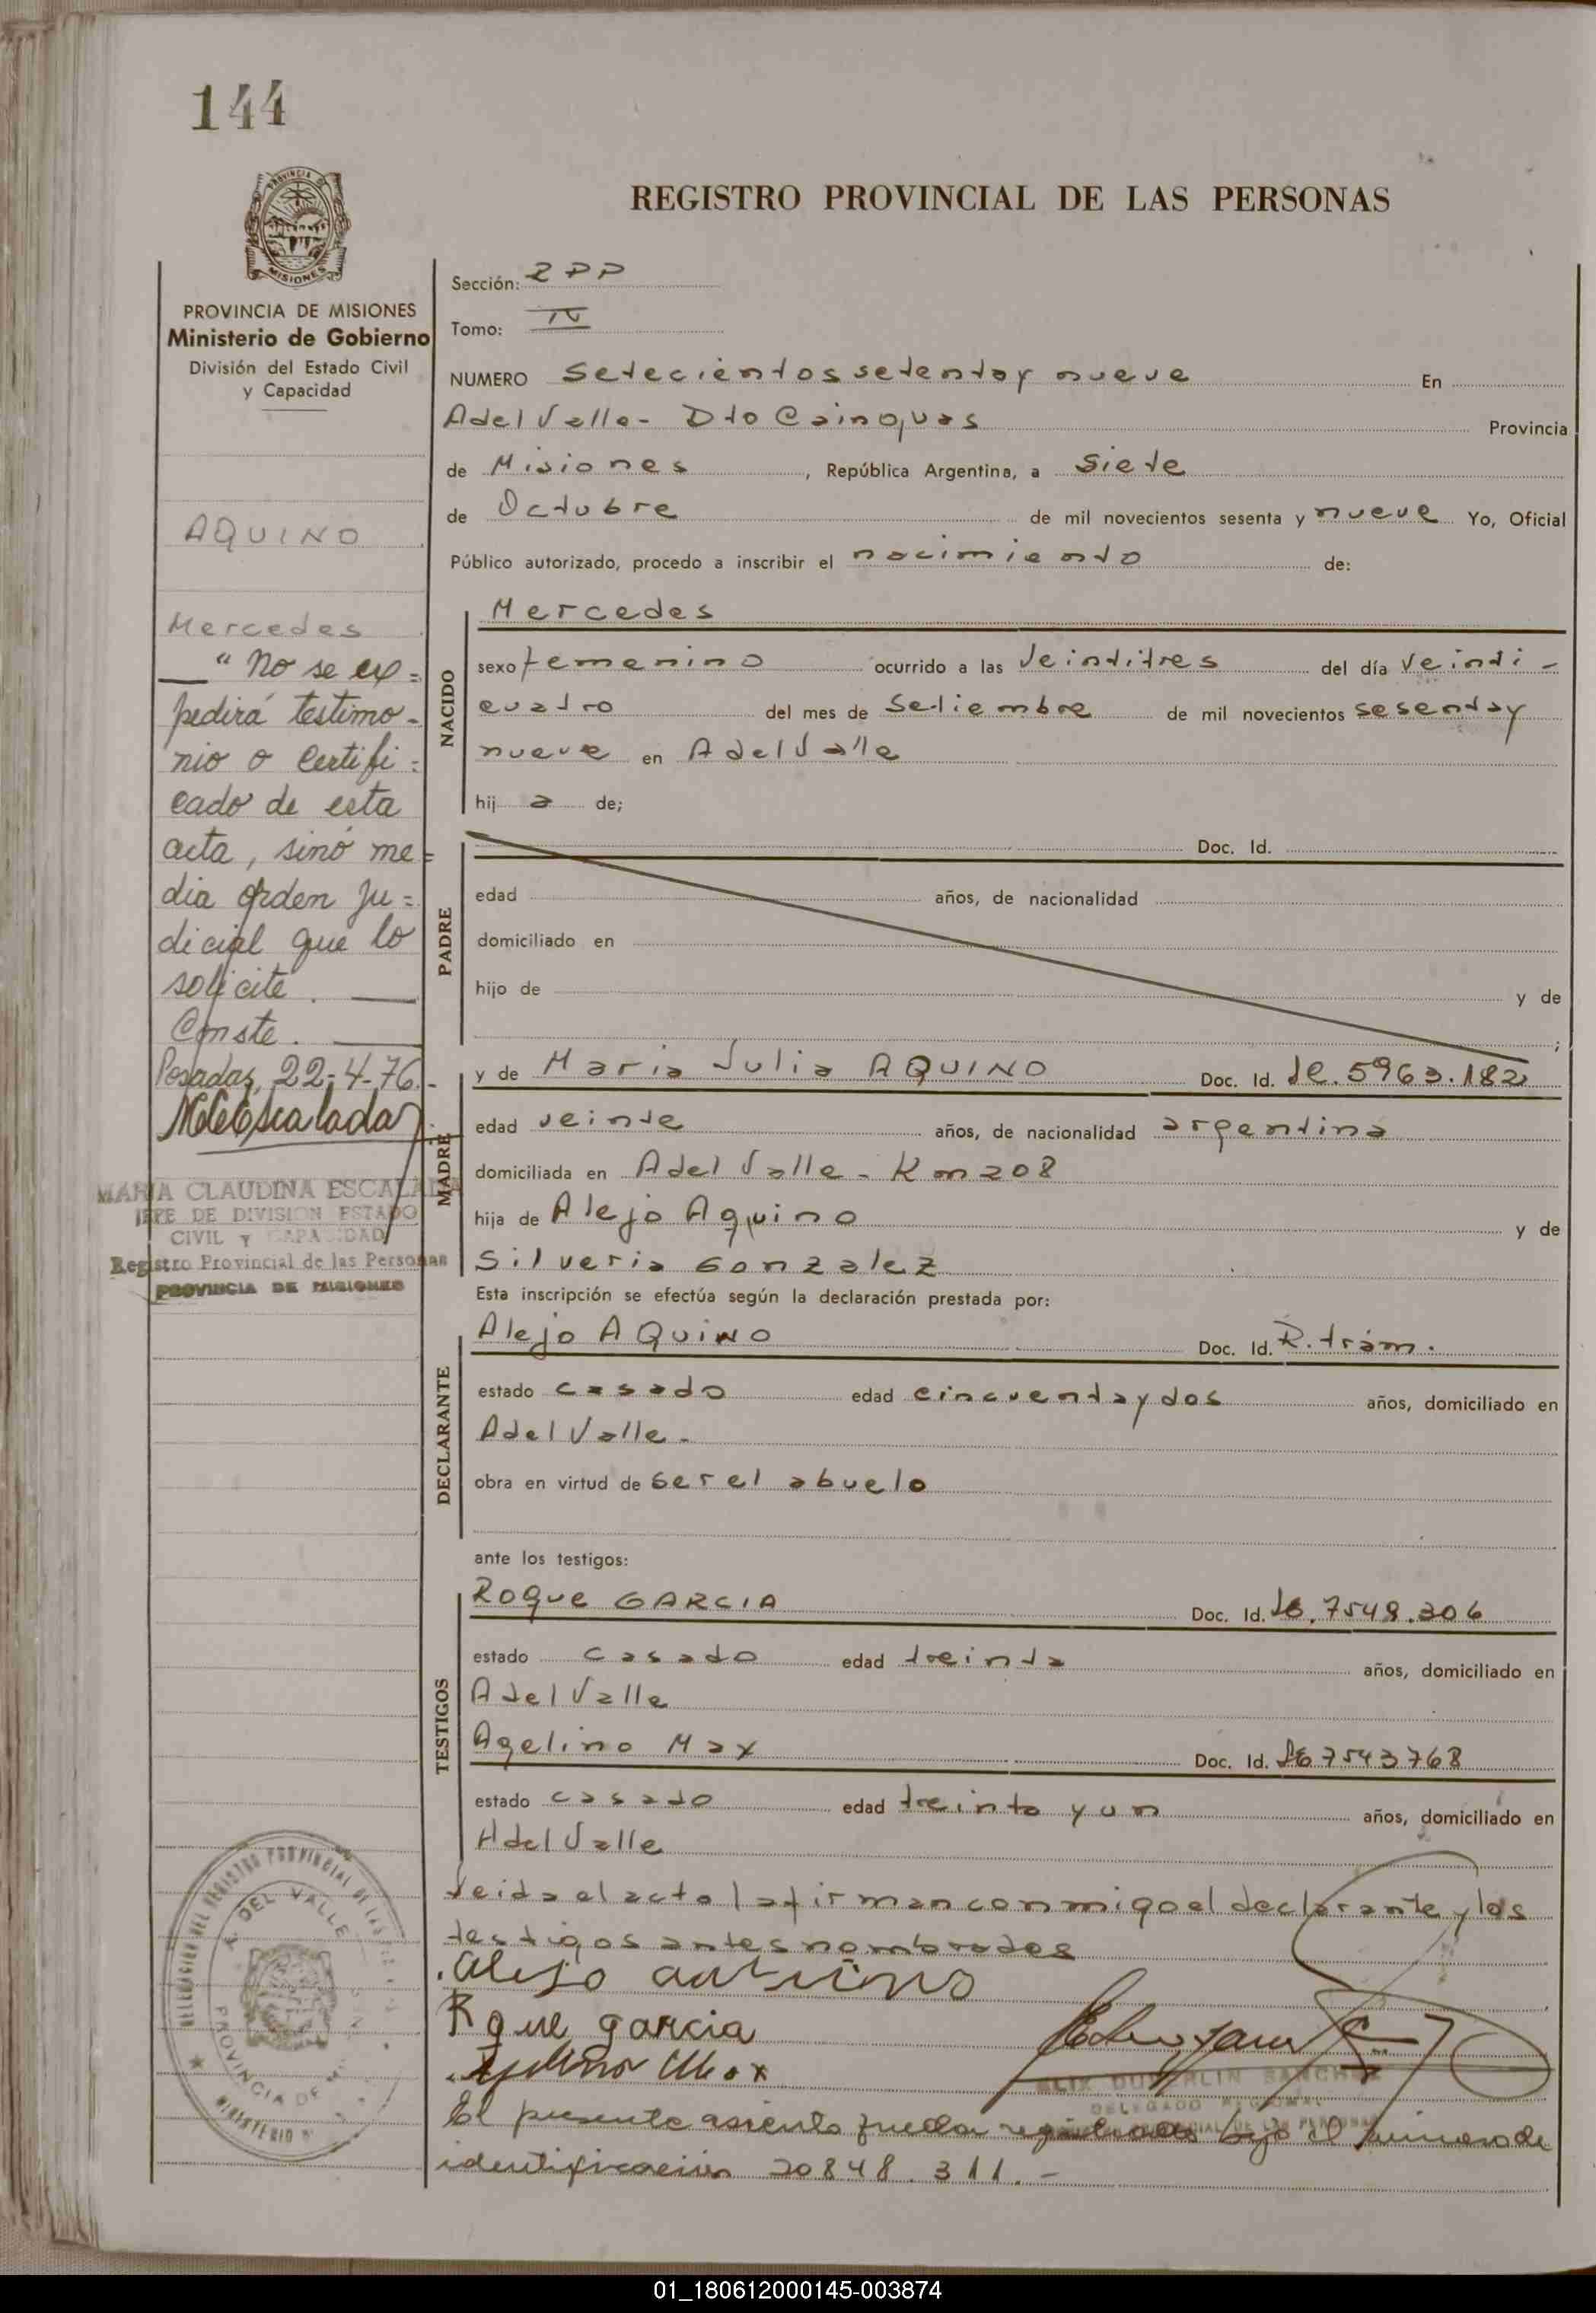 144
REGISTRO PROVINCIAL DE LAS PERSONAS
PROVINCIA DE MISIONES
Ministerio de Gobierno
División del Estado Civil
y Capacidad
AQUINO
Mercedes
"No se ex=
pedirá testimo-
nio o certifi=
cado de esta
acta, sinó me=
dia orden ju=
dicial que lo
solicite.
Conste.
Posadas, 22-4-76.-
MARIA CLAUDINA ESCALADA
JEFE DE DIVISION ESTADO
CIVIL Y CAPACIDAD
Registro Provincial de las Personas
PROVINCIA DE MISIONES
Sección: RPP
Tomo: IV
NUMERO Setecientos setenta y nueve En
A del Valle- Dto Cainguas Provincia
de Misiones, República Argentina, a Siete
de Octubre de mil novecientos sesenta y nueve Yo, Oficial
Público autorizado, procedo a inscribir el nacimiento de:
NACIDO
Mercedes
sexo femenino ocurrido a las Veintitres del día Veinti-
cuatro del mes de Setiembre de mil novecientos sesenta y
nueve en A del Valle
hij a de;
PADRE
Doc. Id.
edad años, de nacionalidad
domiciliado en
hijo de y de
;
MADRE
y de Maria Julia AQUINO Doc. Id. LC. 5963.182
edad veinte años, de nacionalidad argentina
domiciliada en A del Valle - Km 208
hija de Alejo Aquino y de
Silveria Gonzalez
Esta inscripción se efectúa según la declaración prestada por:
DECLARANTE
Alejo AQUINO Doc. Id. R. trám.
estado casado edad cincuenta y dos años, domiciliado en
A del Valle-
obra en virtud de ser el abuelo
ante los testigos:
TESTIGOS
Roque GARCIA Doc. Id. LE. 7549.306
estado casado edad treinta años, domiciliado en
A del Valle
Agelino Max Doc. Id. LE 7543768
estado casado edad treinta y un años, domiciliado en
A del Valle
Leida el acta la firman conmigo el declarante y los
testigos antes nombrados
Rque garcia
DELEGADO REGIONAL
El presente asiento queda registrado bajo el número de
identificación 20848.311.-
DELEGACION DEL REGISTRO PROVINCIAL DE LAS
A. DEL VALLE
PROVINCIA DE
MINISTERIO
01_180612000145-003874